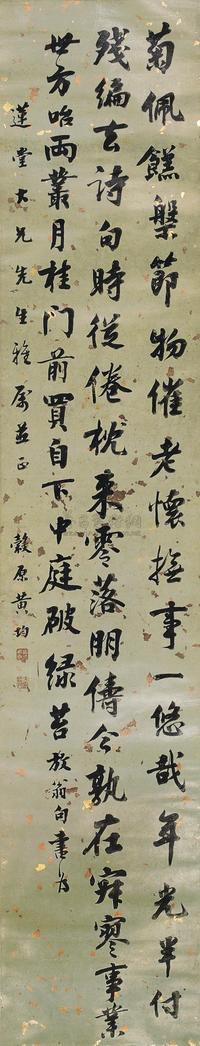 菊佩餻槃節物催老懷撫事一悠哉年光半付
殘編去詩句時從倦枕來零落朋儔今孰在寂寥事業
世方咍兩叢月桂門前買自下中庭破綠苔放翁句書為
蓮堂大兄先生雅屬並正 穀原黃均